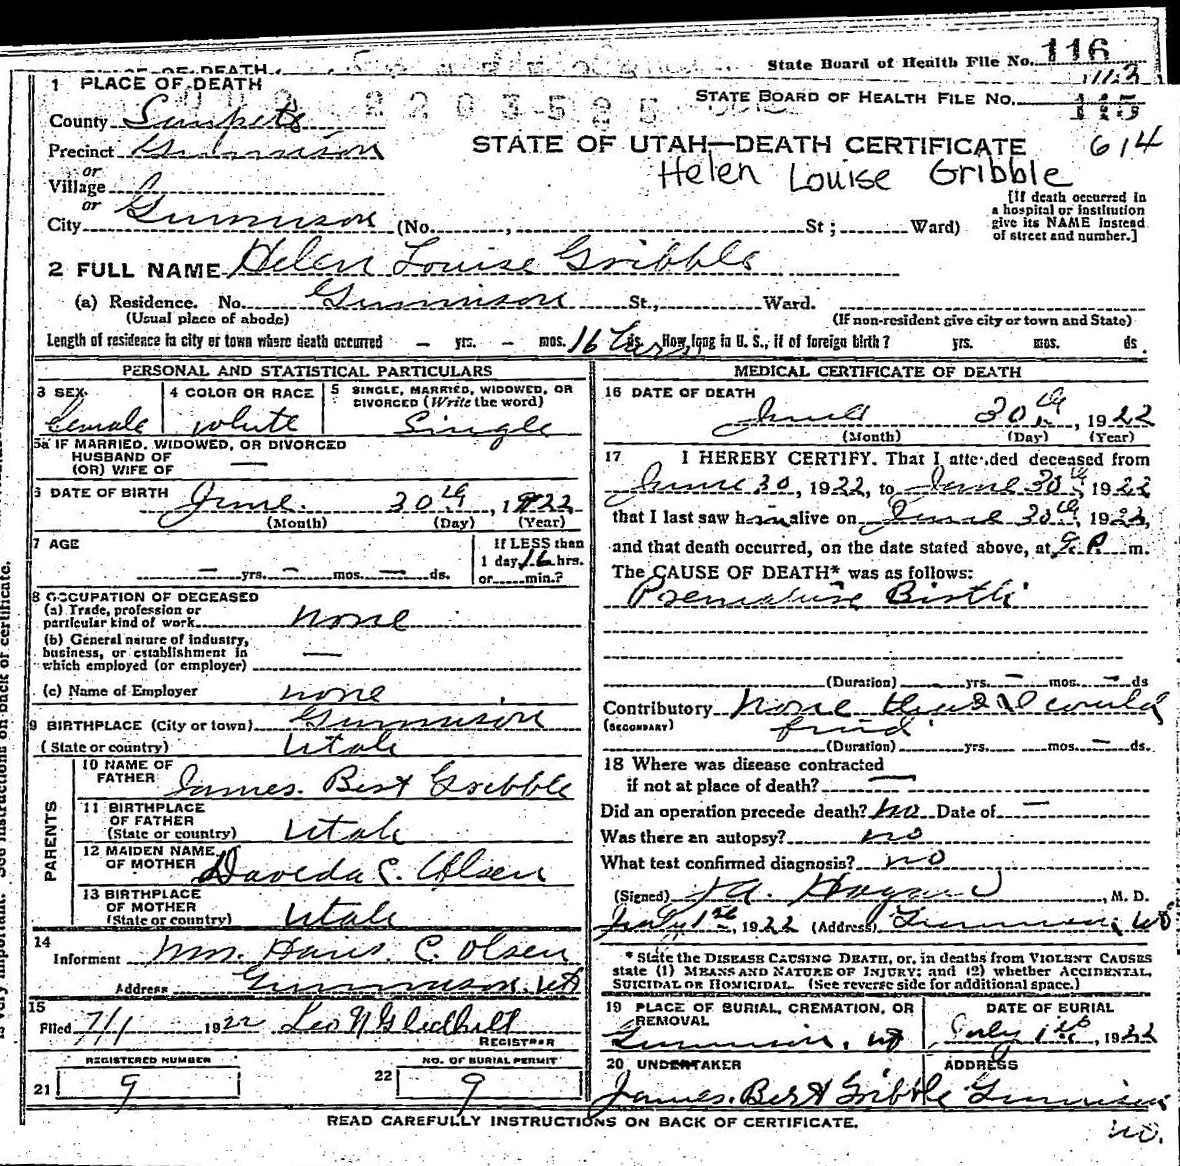 State Board of Health File No. 116
1 PLACE OF DEATH
STATE BOARD OF HEALTH FILE NO. 115
County Sanpete
STATE OF UTAH—DEATH CERTIFICATE 614
Precinct Gunnison
Helen Louise Gribble
or
Village
or
City Gunnison (No. , St; Ward)
[If death occurred in
a hospital or institution
give its NAME instead
of street and number.]
2 FULL NAME Helen Louise Gribble
(a) Residence. No. Gunnison St., Ward.
(Usual place of abode)
(If non-resident give city or town and State)
Length of residence in city or town where death occurred - yrs. - mos. 16 ds. How long in U. S., if of foreign birth? yrs. mos. ds.
PERSONAL AND STATISTICAL PARTICULARS
3 SEX
Female
4 COLOR OR RACE
White
5 SINGLE, MARRIED, WIDOWED, OR
DIVORCED (Write the word)
Single
5a IF MARRIED, WIDOWED, OR DIVORCED
HUSBAND OF
(OR) WIFE OF —
6 DATE OF BIRTH
June 30th, 1922
(Month) (Day) (Year)
7 AGE
— yrs. — mos. — ds.
If LESS than
1 day, 16 hrs.
or min.?
8 OCCUPATION OF DECEASED
(a) Trade, profession or
particular kind of work none
(b) General nature of industry,
business, or establishment in
which employed (or employer) —
(c) Name of Employer none
9 BIRTHPLACE (City or town) Gunnison
(State or country) Utah
PARENTS
10 NAME OF
FATHER James Bert Gribble
11 BIRTHPLACE
OF FATHER
(State or country) Utah
12 MAIDEN NAME
OF MOTHER Daveda C. Olsen
13 BIRTHPLACE
OF MOTHER
(State or country) Utah
14
Informent Mrs. Hans C. Olsen
Address Gunnison. Ut
15
Filed 7/1 1922 Leo N Gledhill
REGISTRAR
REGISTERED NUMBER
21 9
NO. OF BURIAL PERMIT
22 9
MEDICAL CERTIFICATE OF DEATH
16 DATE OF DEATH
June 30th, 1922
(Month) (Day) (Year)
17 I HEREBY CERTIFY. That I attended deceased from
June 30, 1922, to June 30th, 1922
that I last saw h alive on June 30th, 1922,
and that death occurred, on the date stated above, at 9 P. m.
The CAUSE OF DEATH* was as follows:
Premature Birth
(Duration) — yrs. — mos. — ds
Contributory None that I could
(SECONDARY) find
(Duration) yrs. mos. — ds.
18 Where was disease contracted
if not at place of death? —
Did an operation precede death? no Date of —
Was there an autopsy? no
What test confirmed diagnosis? no
(Signed) Hagan, M. D.
July 1st, 1922 (Address) Gunnison, Ut
* State the DISEASE CAUSING DEATH, or, in deaths from VIOLENT CAUSES
state (1) MEANS AND NATURE OF INJURY; and (2) whether ACCIDENTAL,
SUICIDAL OR HOMICIDAL. (See reverse side for additional space.)
19 PLACE OF BURIAL, CREMATION, OR
REMOVAL
Gunnison, Ut
DATE OF BURIAL
July 1st, 1922
20 UNDERTAKER
James Bert Gribble
ADDRESS
Gunnison
Ut.
READ CAREFULLY INSTRUCTIONS ON BACK OF CERTIFICATE.